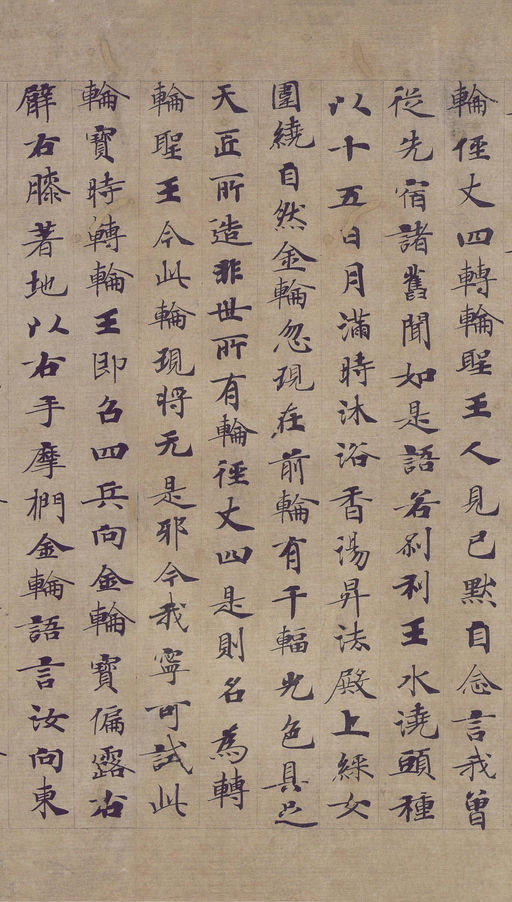 輪俓丈四轉輪聖王人見已默自念言我曾
從先宿諸舊聞如是語若刹利王水澆頭種
以十五日月滿時沐浴香湯昇法殿上綵女
圍繞自然金輪忽現在前輪有千輻光色具足
天匠所造非世所有輪徑丈四是則名為轉
輪聖王今此輪現將无是邪今我寧可試此
輪寶時轉輪王即召四兵向金輪寶偏露右
臂右膝著地以右手摩捫金輪語言汝向東